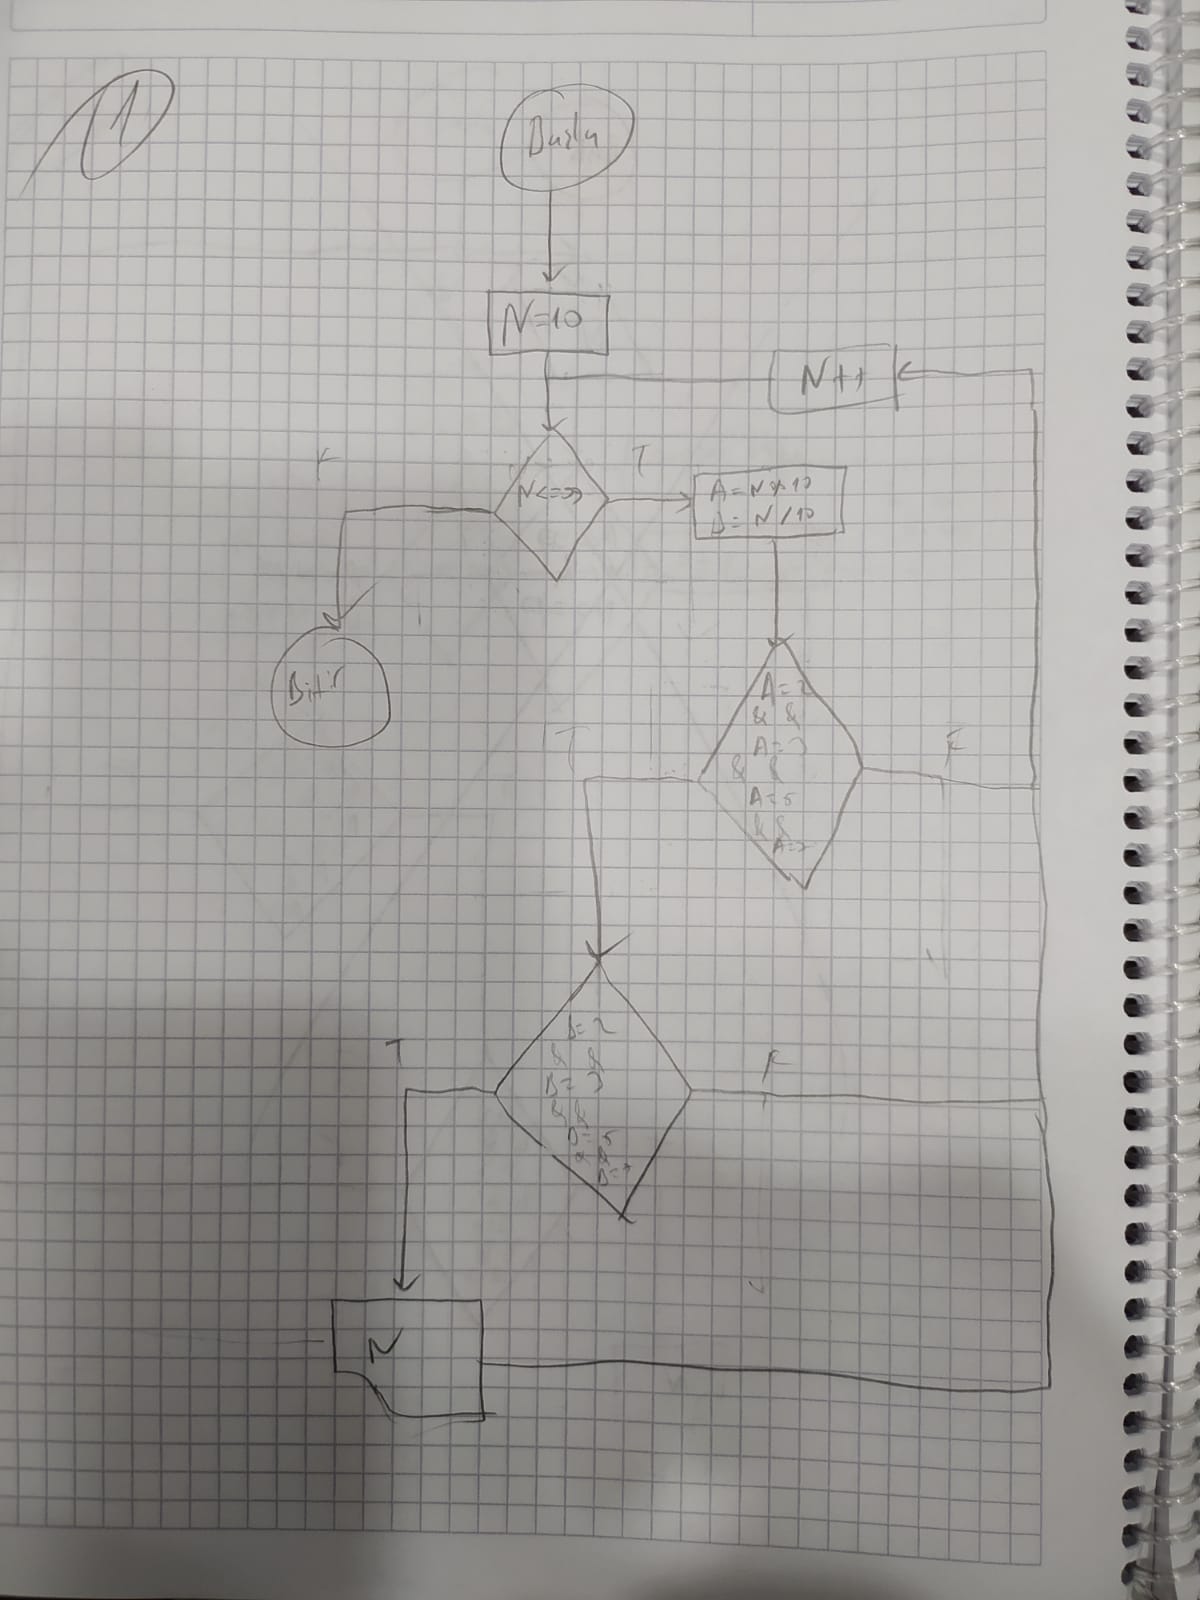 1
Başla
N=10
N++
F
T
N<=99
A=N%10
B=N/10
Bitir
A=2
& &
A=3
& &
A=5
& &
A=7
T
F
B=2
& &
B=3
& &
B=5
& &
B=7
T
F
N